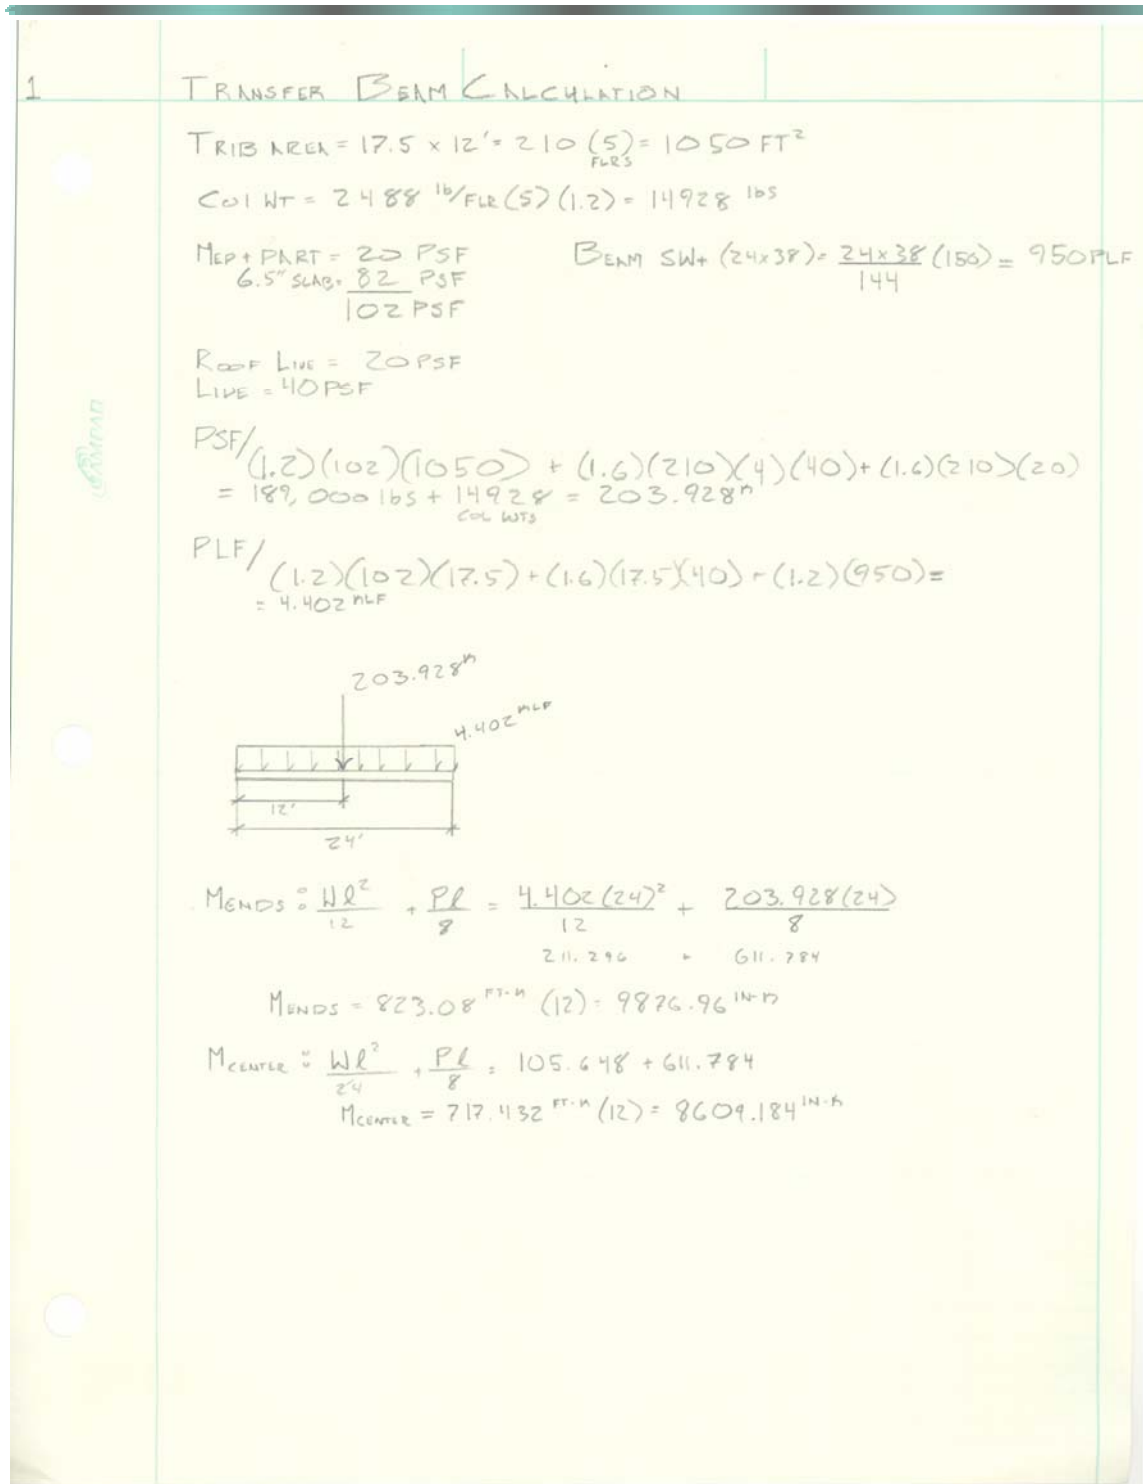 1
TRANSFER BEAM CALCULATION
TRIB AREA = 17.5 x 12' = 210 (5) = 1050 FT²
FLRS
Col WT = 2488 lb/FLR (5)(1.2) = 14928 lbs
MEP + PART = 20 PSF
6.5" SLAB = 82 PSF
102 PSF
BEAM SWt (24x38) = 24x38/144 (150) = 950 PLF
ROOF LIVE = 20 PSF
LIVE = 40 PSF
PSF/
(1.2)(102)(1050) + (1.6)(210)(4)(40) + (1.6)(210)(20)
= 189,000 lbs + 14928 = 203.928ᵏ
COL WTS
PLF/
(1.2)(102)(17.5) + (1.6)(17.5)(40) + (1.2)(950) =
= 4.402 KLF
203.928ᵏ
4.402 KLF
12'
24'
MENDS : Wl²/12 + Pl/8 = 4.402(24)²/12 + 203.928(24)/8
211.296 + 611.784
MENDS = 823.08 FT-K (12) = 9876.96 IN-K
MCENTER : Wl²/24 + Pl/8 = 105.648 + 611.784
MCENTER = 717.432 FT-K (12) = 8609.184 IN-K
AMPAD